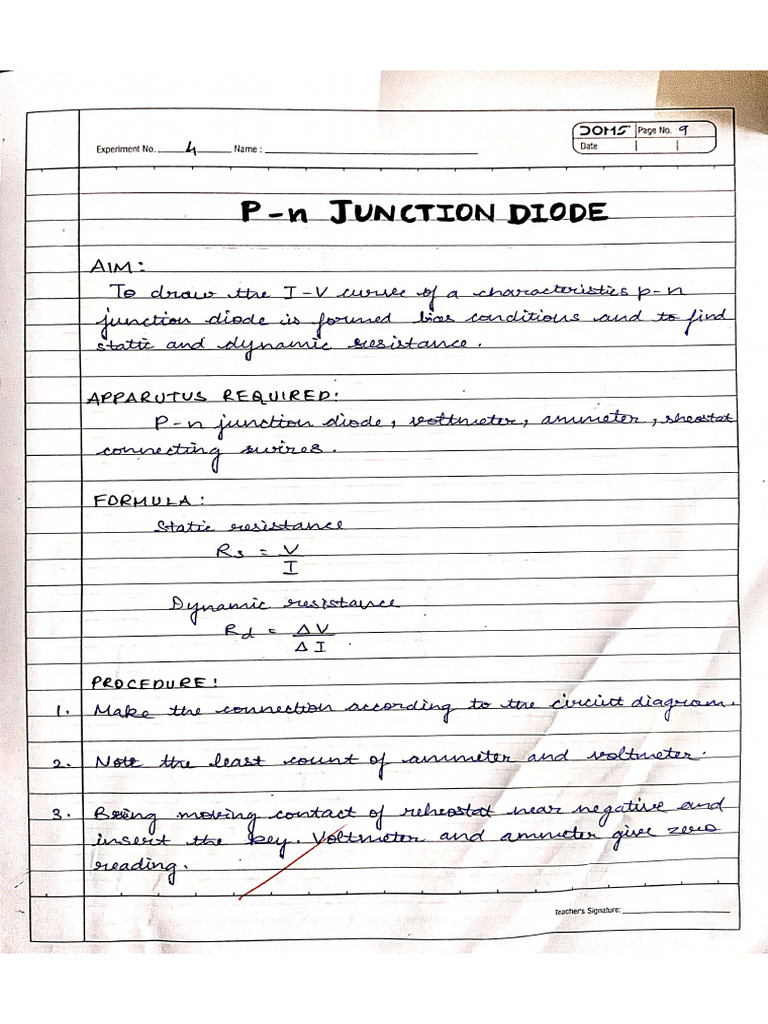 Experiment No. 4 Name :
DOMS Page No. 9
Date
P-n JUNCTION DIODE
AIM:
To draw the I-V curve of a characteristics p-n
junction diode is formed bias conditions and to find
static and dynamic resistance.
APPARUTUS REQUIRED:
P-n junction diode, voltmeter, ammeter, rheostat
connecting wires.
FORMULA:
Static resistance
Rs = V
I
Dynamic resistance
Rd = ΔV
ΔI
PROCEDURE:
1. Make the connection according to the circiut diagram.
2. Note the least count of ammeter and voltmeter.
3. Being moving contact of reheostat near negative and
insert the key. Voltmeter and ammeter give zero
reading.
Teacher's Signature: